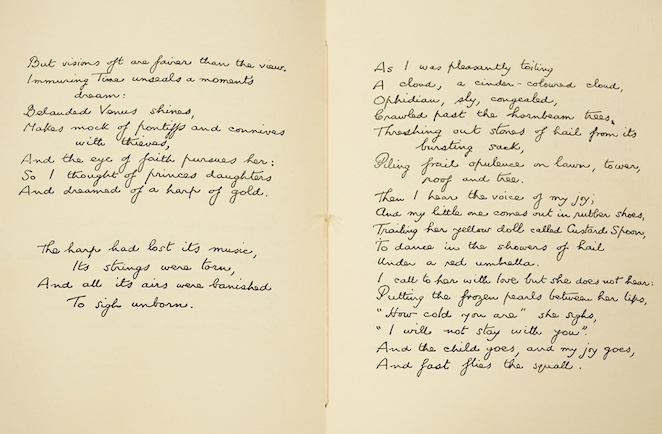 But visions oft are fairer than the view.
Immuring Time unseals a moment's
dream:
Belauded Venus shines,
Makes mock of pontiffs and connives
with thieves,
And the eye of faith pursues her:
So I thought of princes daughters
And dreamed of a harp of gold.
The harp had lost its music,
Its strings were torn,
And all its airs were banished
To sigh unborn.
As I was pleasantly toiling
A cloud, a cinder-coloured cloud,
Ophidian, sly, congealed,
Crawled past the hornbeam trees,
Threshing out stores of hail from its
bursting sack,
Piling frail opulence on lawn, tower,
roof and tree.
Then I hear the voice of my joy;
And my little one comes out in rubber shoes,
Trailing her yellow doll called Custard Spoon,
To dance in the showers of hail
Under a red umbrella.
I call to her with love but she does not hear:
Putting the frozen pearls between her lips,
"How cold you are" she sighs,
"I will not stay with you".
And the child goes, and my joy goes,
And fast flies the squall.